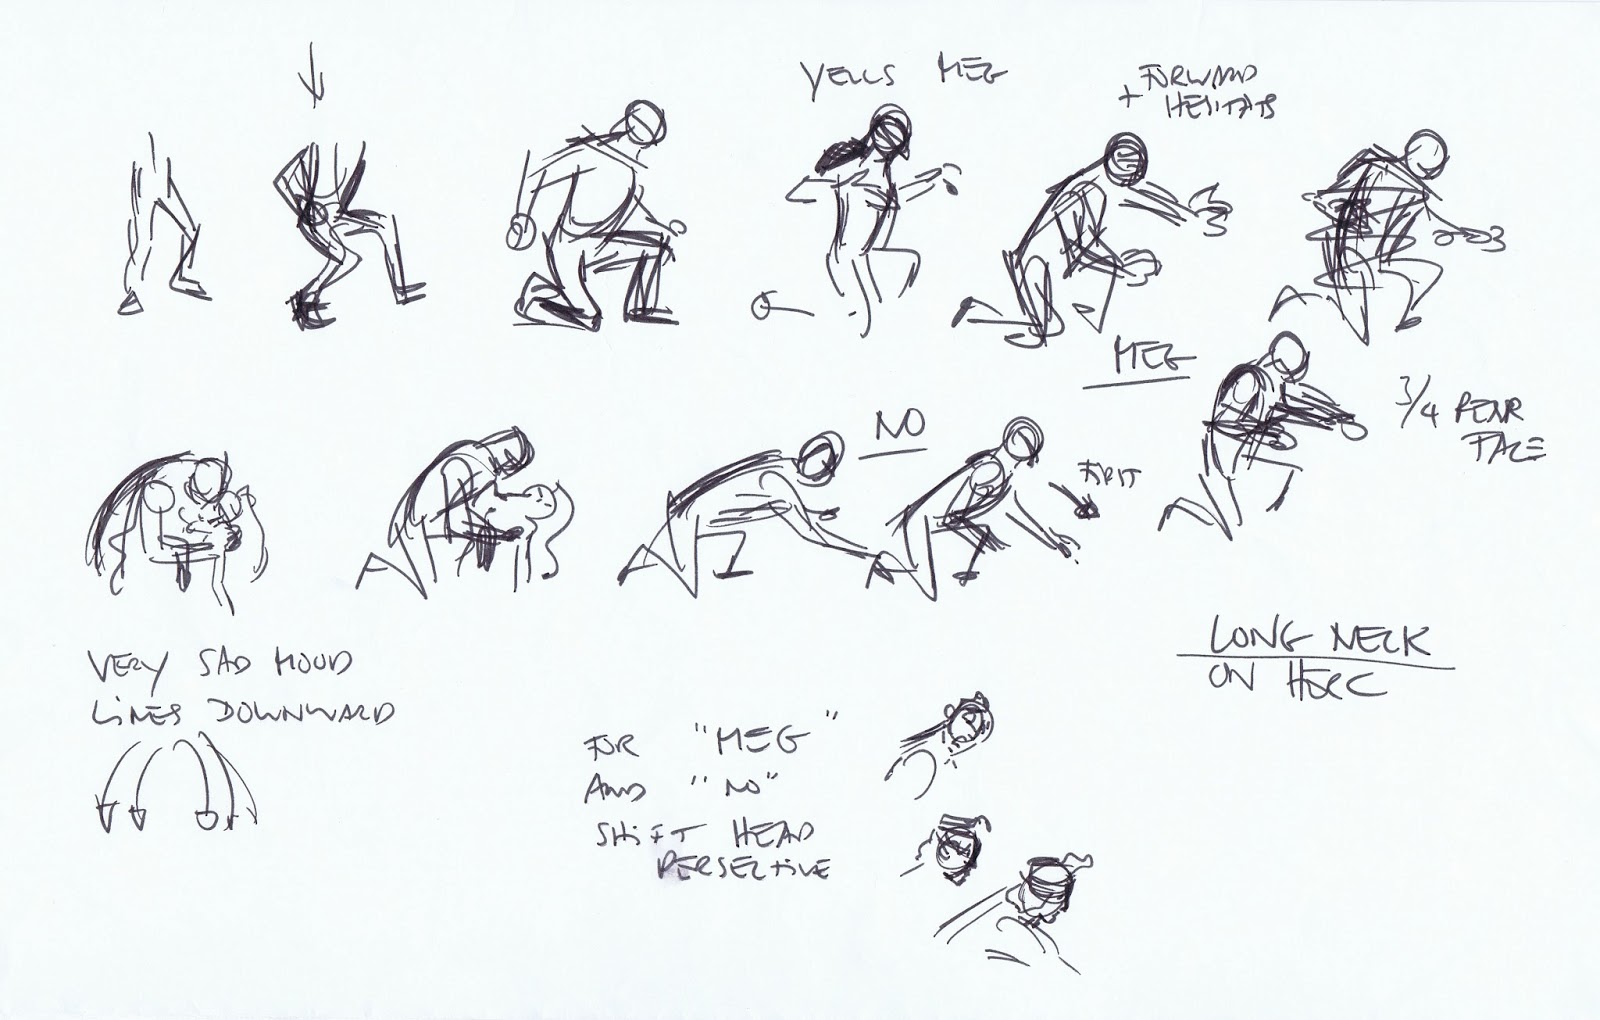 YELLS MEG
+ FORWARD
HESITATS
MEG
3/4 REAR
FACE
NO
LONG NECK
ON HERC
VERY SAD MOOD
LINES DOWNWARD
FOR "MEG"
AND "NO"
SHIFT HEAD
PERSECTIVE